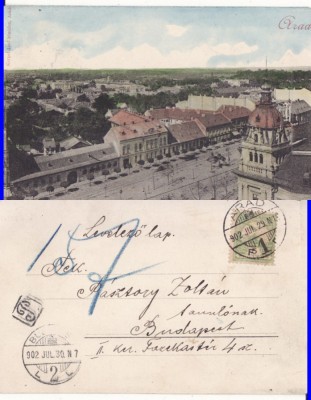 Arad
ARAD
902 JUL. 29. N
1
157
Levelező lap.
Pásztory Zoltán
tanulónak
Budapest
II. ker.
4 sz.
902 JUL. 30. N 7
2